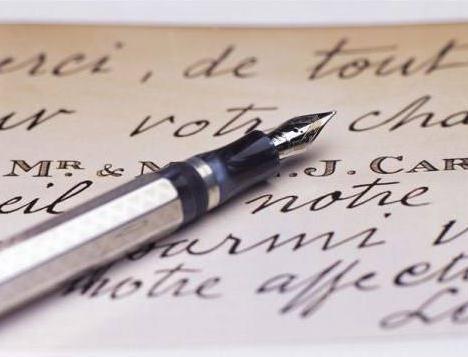 erci, de tout
ur votre cha
MR. & M .J. CAR
eil notre
parmi v
notre affect